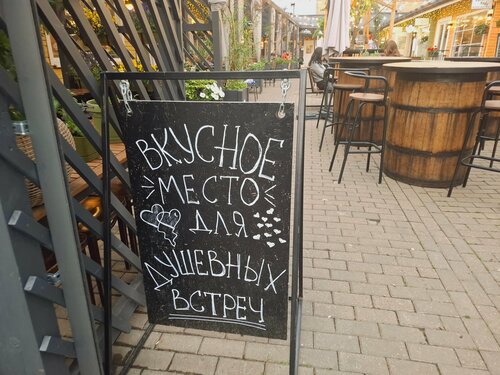 ВКУСНОЕ
МЕСТО
ДЛЯ
ДУШЕВНЫХ
ВСТРЕЧ